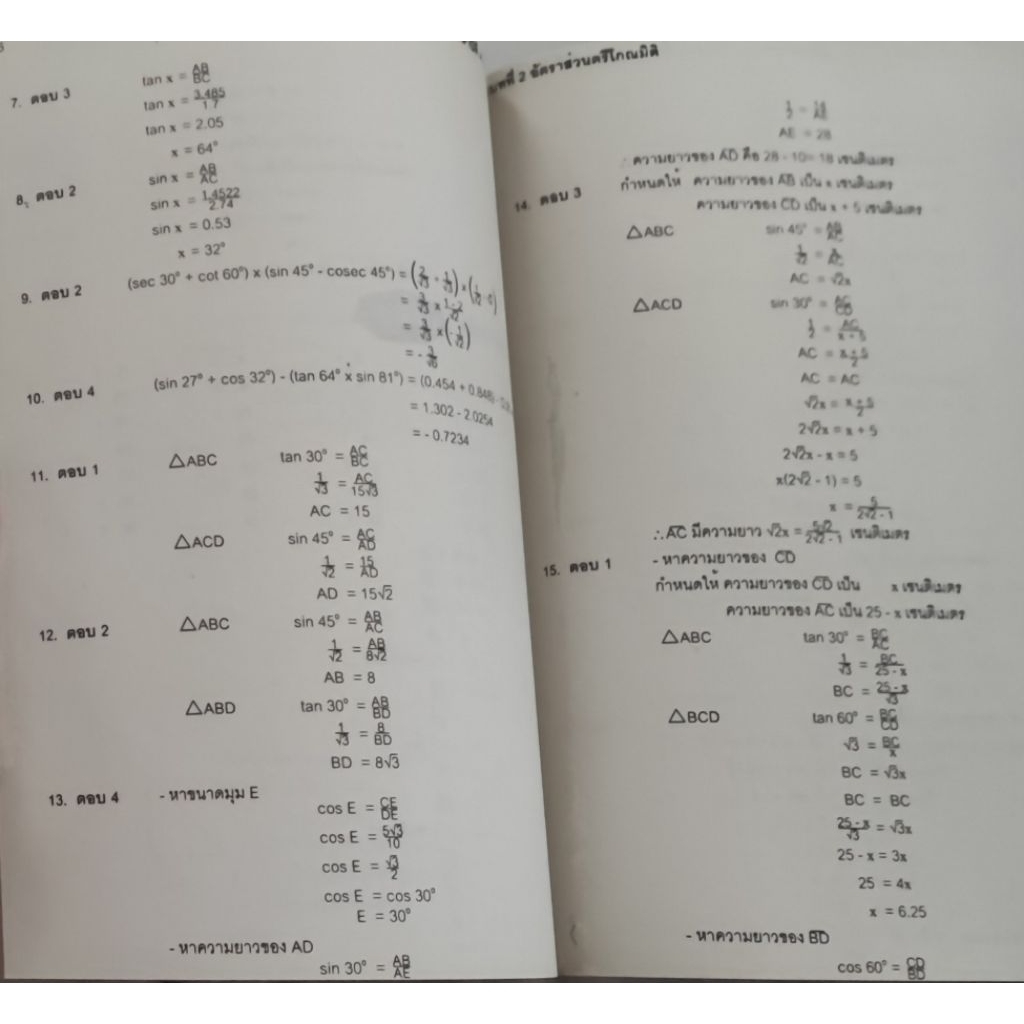 7. ตอบ 3 tan x = AB/BC
tan x = 3.485/1.7
tan x = 2.05
x = 64°
8. ตอบ 2 sin x = AB/AC
sin x = 1.4522/2.74
sin x = 0.53
x = 32°
9. ตอบ 2 (sec 30° + cot 60°) x (sin 45° - cosec 45°) = (2/√3 + 1/√3) x (1/√2 - √2)
= 3/√3 x 1-2/√2
= 3/√3 x (-1/√2)
= - 3/√6
10. ตอบ 4 (sin 27° + cos 32°) - (tan 64° x sin 81°) = (0.454 + 0.848) -
= 1.302 - 2.0254
= - 0.7234
11. ตอบ 1 △ABC tan 30° = AC/BC
1/√3 = AC/15√3
AC = 15
△ACD sin 45° = AC/AD
1/√2 = 15/AD
AD = 15√2
12. ตอบ 2 △ABC sin 45° = AB/AC
1/√2 = AB/8√2
AB = 8
△ABD tan 30° = AB/BD
1/√3 = 8/BD
BD = 8√3
13. ตอบ 4 - หาขนาดมุม E
cos E = CE/DE
cos E = 5√3/10
cos E = √3/2
cos E = cos 30°
E = 30°
- หาความยาวของ AD
sin 30° = AB/AE
บทที่ 2 อัตราส่วนตรีโกณมิติ
1/2 = 14/AE
AE = 28
∴ ความยาวของ AD คือ 28 - 10 = 18 เซนติเมตร
14. ตอบ 3 กำหนดให้ ความยาวของ AB เป็น x เซนติเมตร
ความยาวของ CD เป็น x + 5 เซนติเมตร
△ABC sin 45° = AB/AC
1/√2 = x/AC
AC = √2x
△ACD sin 30° = AC/CD
1/2 = AC/x + 5
AC = x + 5/2
AC = AC
√2x = x + 5/2
2√2x = x + 5
2√2x - x = 5
x(2√2 - 1) = 5
x = 5/2√2 - 1
∴ AC มีความยาว √2x = 5√2/2√2 - 1 เซนติเมตร
15. ตอบ 1 - หาความยาวของ CD
กำหนดให้ ความยาวของ CD เป็น x เซนติเมตร
ความยาวของ AC เป็น 25 - x เซนติเมตร
△ABC tan 30° = BC/AC
1/√3 = BC/25 - x
BC = 25 - x/√3
△BCD tan 60° = BC/CD
√3 = BC/x
BC = √3x
BC = BC
25 - x/√3 = √3x
25 - x = 3x
25 = 4x
x = 6.25
- หาความยาวของ BD
cos 60° = CD/BD